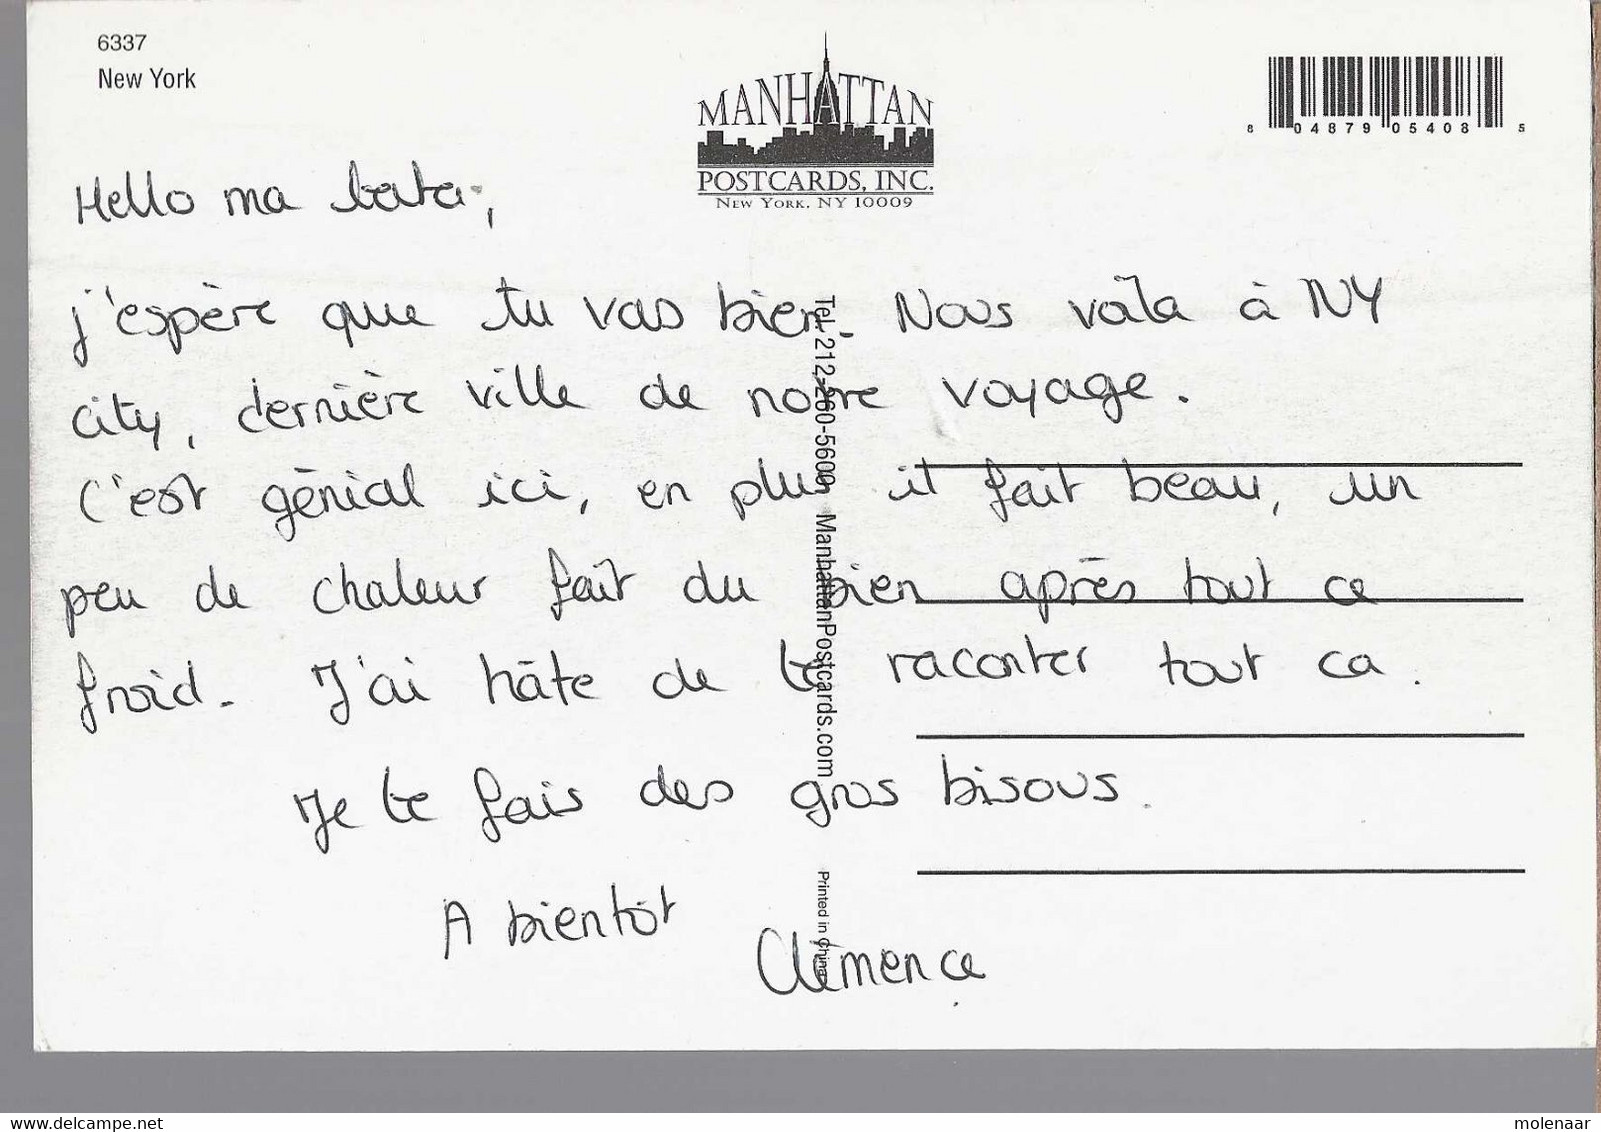 6337
New York
MANHATTAN
POSTCARDS, INC.
NEW YORK, NY 10009
8 04879 05408 5
Hello ma tata,
j'espère que tu vas bien. Nous voila à NY
city, dernière ville de notre voyage.
C'est génial ici, en plus il fait beau, un
peu de chaleur fait du bien après tout ce
froid. J'ai hâte de te raconter tout ca.
Je te fais des gros bisous.
A bientôt
Clémence
Tel. 212-260-5600 ManhattanPostcards.com
Printed in China
delcampe.net
molenaar